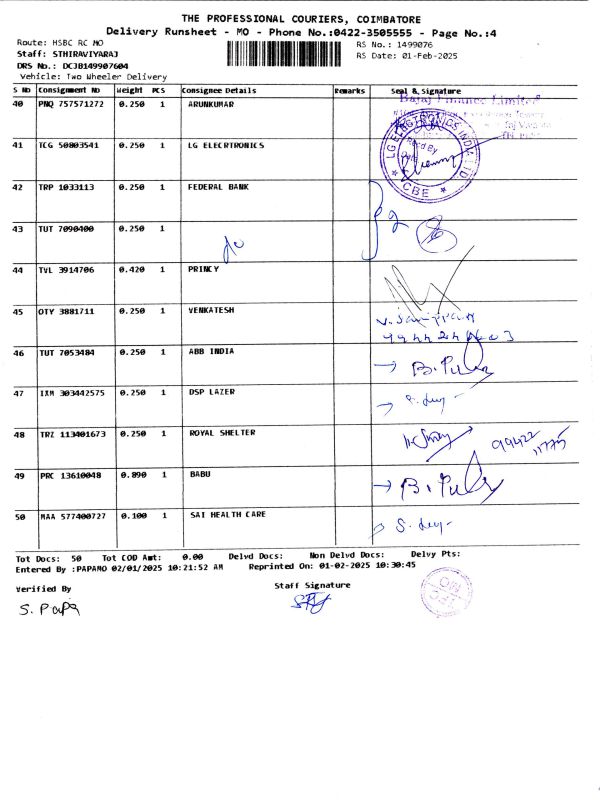 THE PROFESSIONAL COURIERS, COIMBATORE
Delivery Runsheet - MO - Phone No.:0422-3505555 - Page No.:4
Route: HSBC RC MO
RS No.: 1499076
Staff: STHIRAVIYARAJ
RS Date: 01-Feb-2025
DRS No.: DCJB149907604
Vehicle: Two Wheeler Delivery
S No Consignment No Weight PCS Consignee Details Remarks Seal & Signature
40 PNQ 757571272 0.250 1 ARUNKUMAR
Bajaj Finance Limited
41 TCG 50803541 0.250 1 LG ELECRTRONICS
LG ELECTRONICS INDIA LTD. * CBE *
Recd By
Date
42 TRP 1033113 0.250 1 FEDERAL BANK
43 TUT 7090400 0.250 1
44 TVL 3914706 0.420 1 PRINCY
45 OTY 3881711 0.250 1 VENKATESH
46 TUT 7053484 0.250 1 ABB INDIA
47 IXM 303442575 0.250 1 DSP LAZER
48 TRZ 113401673 0.250 1 ROYAL SHELTER
99422
11775
49 PRC 13610048 0.890 1 BABU
50 MAA 577400727 0.100 1 SAI HEALTH CARE
Tot Docs: 50 Tot COD Amt: 0.00 Delvd Docs: Non Delvd Docs: Delvy Pts:
Entered By :PAPAMO 02/01/2025 10:21:52 AM Reprinted On: 01-02-2025 10:30:45
Verified By
Staff Signature
S. Papa